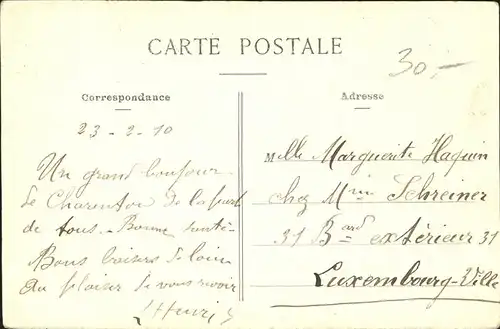 CARTE POSTALE
30.-
Correspondance
Adresse
23-2-10
Un grand bonjour
de Charenton de la part
de tous. - Bonne santé
Bons baisers de loin
Au plaisir de vous revoir
Henri
Melle Marguerite Haquin
chez Mme Schreiner
31 Bard extérieur 31
Luxembourg-Ville